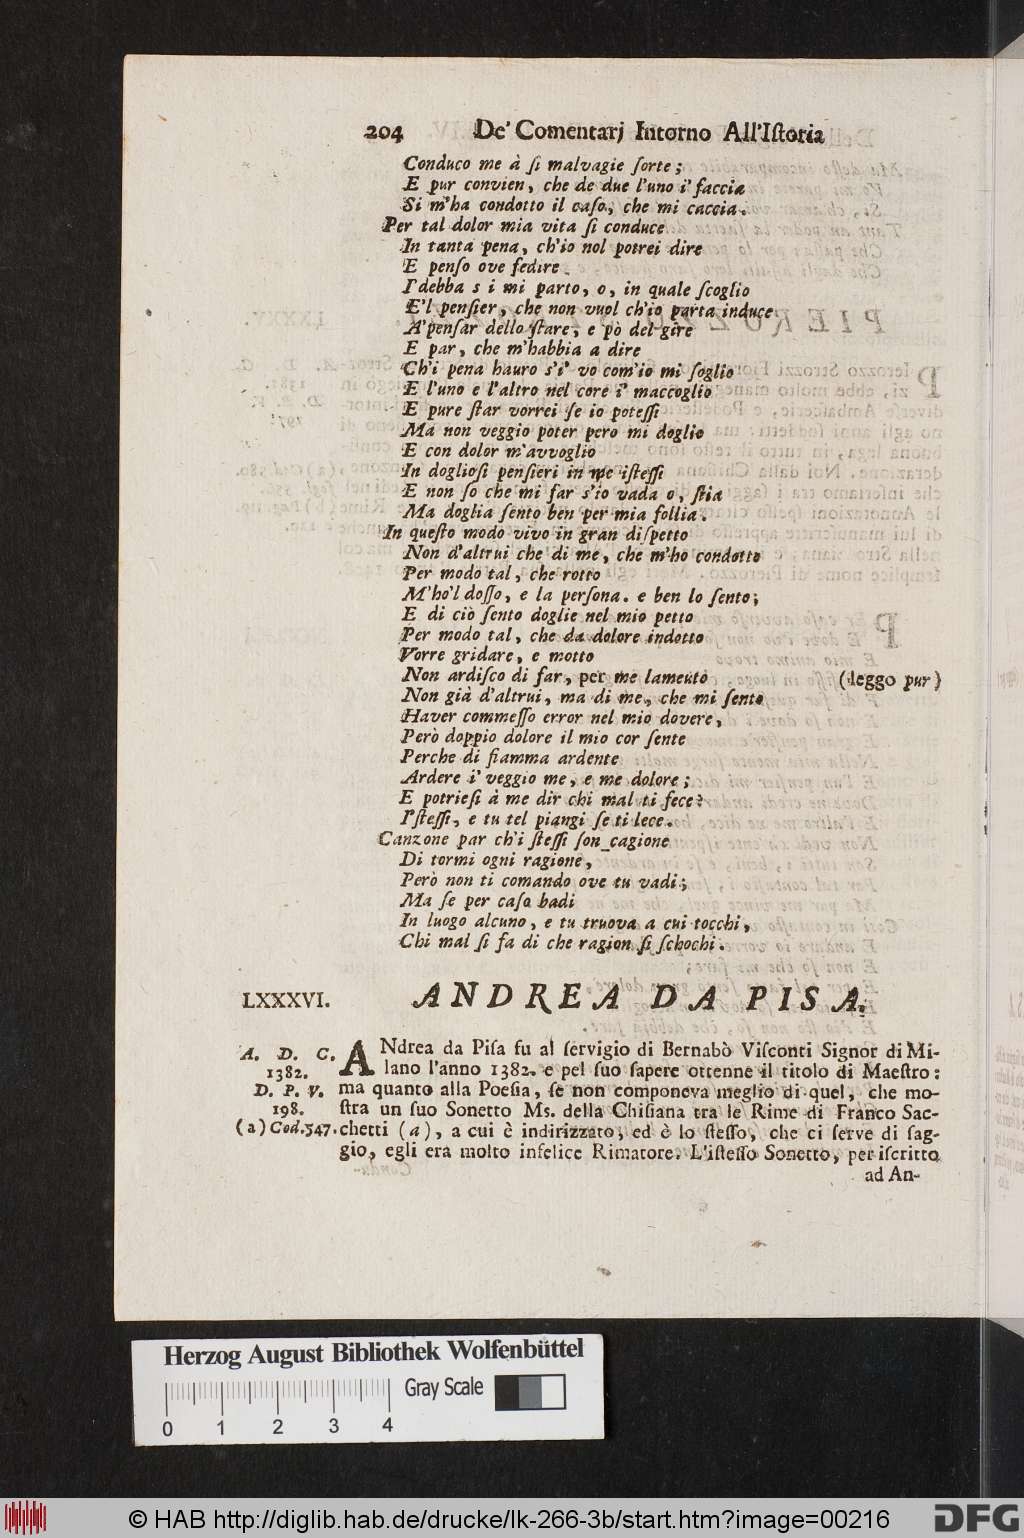 204 De' Comentarj Intorno All'Iſtoria
Conduco me à ſi malvagie ſorte;
E pur convien, che de due l'uno i' faccia
Si m'ha condotto il caſo, che mi caccia.
Per tal dolor mia vita ſi conduce
In tanta pena, ch'io nol potrei dire
E penſo ove fedire.
I' debba s i mi parto, o, in quale ſcoglio
E'l penſier, che non vuol ch'io parta induce
A' penſar dello ſtare, e pò del gire
E par, che m'habbia a dire
Ch'i pena hauro s'i' vo com'io mi ſoglio
E l'uno e l'altro nel core i' maccoglio
E pure ſtar vorrei ſe io poteſſi
Ma non veggio poter pero mi doglio
E con dolor m'avvoglio
In doglioſi penſieri in me iſteſſi
E non ſo che mi far s'io vada o, ſtia
Ma doglia ſento ben per mia follia.
In queſto modo vivo in gran diſpetto
Non d'altrui che di me, che m'ho condotto
Per modo tal, che rotto
M'ho'l doſſo, e la perſona. e ben lo ſento;
E di ciò ſento doglie nel mio petto
Per modo tal, che da dolore indotto
Vorre gridare, e motto
Non ardiſco di far, per me lamento (leggo pur)
Non già d'altrui, ma di me, che mi ſento
Haver commeſſo error nel mio dovere,
Però doppio dolore il mio cor ſente
Perche di fiamma ardente
Ardere i' veggio me, e me dolore;
E potrieſi à me dir chi mal ti fece?
I'ſteſſi, e tu tel piangi ſe ti lece.
Canzone par ch'i ſteſſi ſon cagione
Di tormi ogni ragione,
Però non ti comando ove tu vadi;
Ma ſe per caſo badi
In luogo alcuno, e tu truova a cui tocchi,
Chi mal ſi fa di che ragion ſi ſchochi.
LXXXVI. ANDREA DA PISA.
A. D. C. ANdrea da Piſa fu al ſervigio di Bernabò Viſconti Signor di Mi-
1382. lano l'anno 1382. e pel ſuo ſapere ottenne il titolo di Maeſtro:
D. P. V. ma quanto alla Poeſia, ſe non componeva meglio di quel, che mo-
198. ſtra un ſuo Sonetto Ms. della Chiſiana tra le Rime di Franco Sac-
(a) Cod. 547. chetti (a), a cui è indirizzato, ed è lo ſteſſo, che ci ſerve di ſag-
gio, egli era molto infelice Rimatore. L'iſteſſo Sonetto, per iſcritto
ad An-
Herzog August Bibliothek Wolfenbüttel
Gray Scale
0 1 2 3 4
© HAB http://diglib.hab.de/drucke/lk-266-3b/start.htm?image=00216 DFG